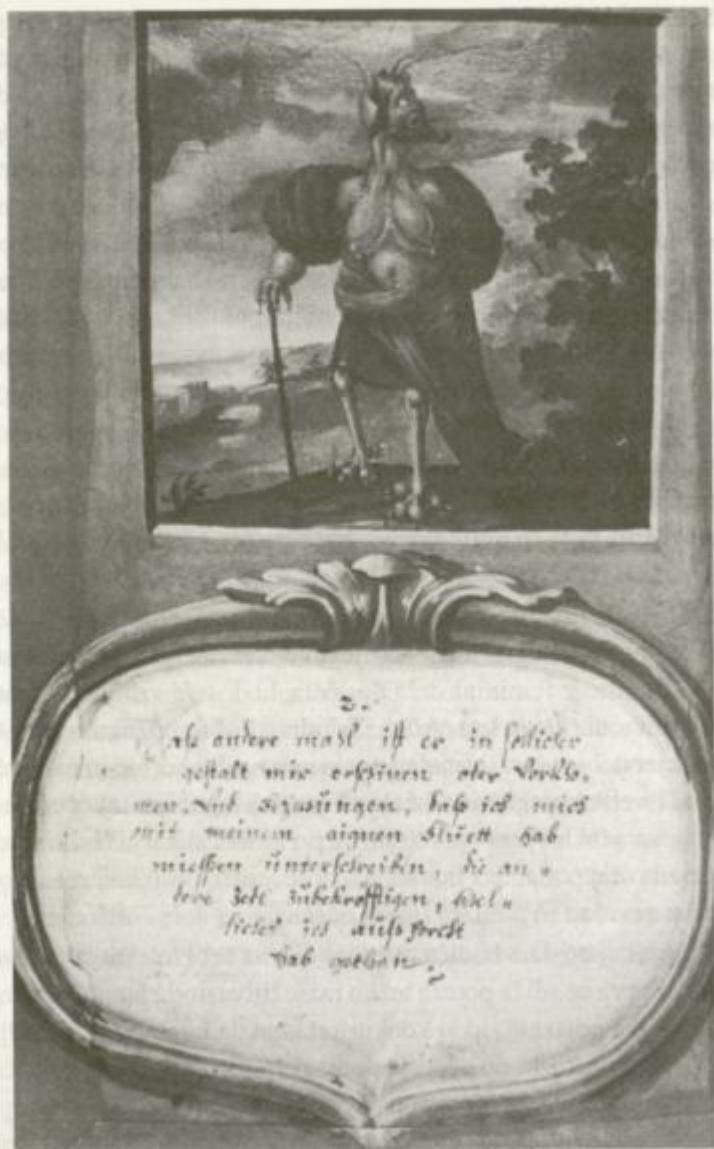 2.
als andere mahl ist er in solicher
gestalt mir erschinen oder Vorkho„
men. Und bezwungen, dass ich mich
mit meinem aignen Bluett hab
miessen unterschreiben, die an„
dere Zedl zubekröfftigen, wel„
licher ich auss forcht
hab gethan